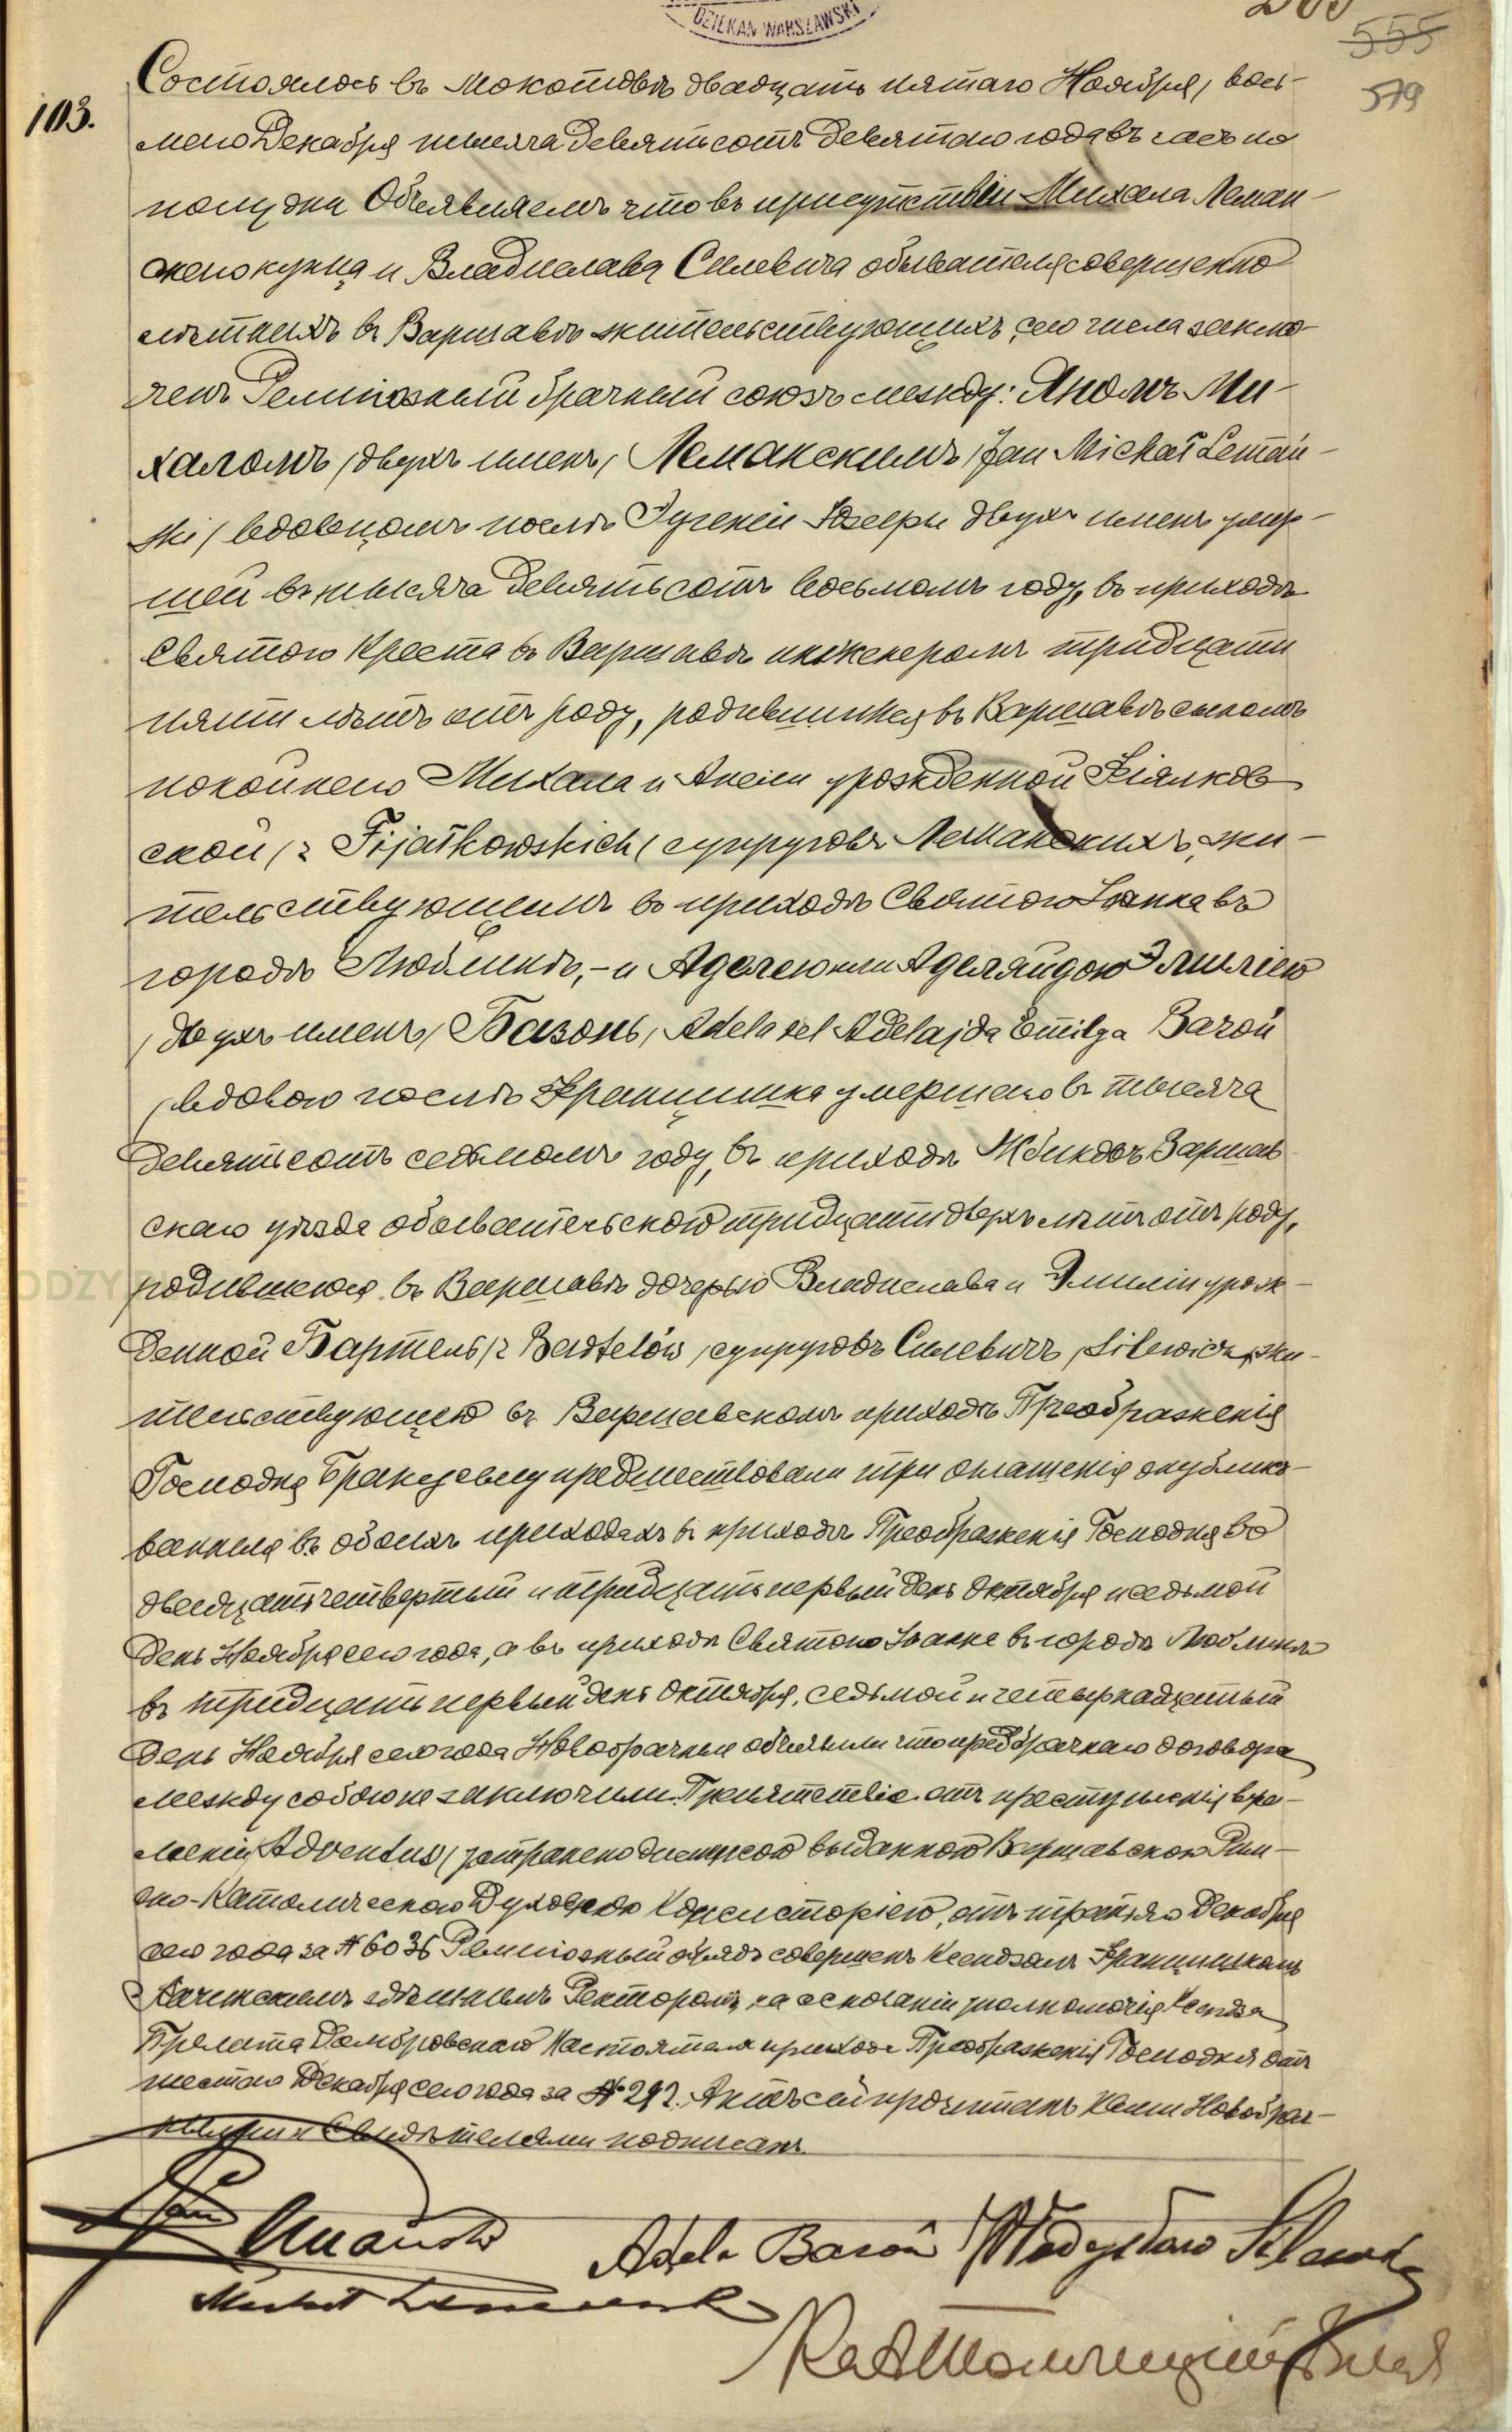 DZIEKAN WARSZAWSKI
555
579
103.
Состоялось въ Мокотовѣ двадцать пятаго Ноября / вось-
маго Декабря тысяча девятьсотъ девятаго года въ часъ по
полудни Объявляемъ что въ присутствіи Михала Леман-
скаго купца и Владислава Силевича обывателя совершенно
лѣтнихъ въ Варшавѣ жительствующихъ, сего числа заклю-
ченъ Религіозный брачный союзъ между: Яномъ Ми-
халомъ / двухъ именъ / Леманскимъ / Jan Michał Lemań-
ski / вдовцомъ послѣ Эугеніи Юзефы двухъ именъ умер-
шей въ тысяча девятьсотъ восьмомъ году, въ приходѣ
Святого Креста въ Варшавѣ инженеромъ тридцати
пяти лѣтъ отъ роду, родившимся въ Варшавѣ сыномъ
покойнаго Михала и Анели урожденной Фіялков-
ской / z Fijałkowskich / супруговъ Леманскихъ, жи-
тельствующимъ въ приходѣ Святого Іоанна въ
городѣ Люблинѣ, - и Аделею или Аделяйдою Эмиліею
/ двухъ именъ / Базонь, Adela vel Adelajda Emilja Bazoń
/ вдовою послѣ Францишка умершаго въ тысяча
девятьсотъ седьмомъ году, въ приходѣ Жбиковъ Варшав-
скаго уѣзда обывательскою тридцати двухъ лѣтъ отъ роду,
родившеюся въ Варшавѣ дочерью Владислава и Эмиліи урож-
денной Бартель / z Bartelów / супруговъ Силевичъ / Silewicz / жи-
тельствующею въ Варшавскомъ приходѣ Преображенія
Господня Браку сему предшествовали три оглашенія опублико-
ванныя въ обоихъ приходахъ въ приходѣ Преображенія Господня въ
двадцать четвертый и тридцать первый день Октября и седьмой
день Ноября сего года, а въ приходѣ Святого Іоанна въ городѣ Люблинѣ
въ тридцать первый день Октября, седьмой и четырнадцатый
день Ноября сего года Новобрачные объявили что предбрачнаго договора
между собою не заключили. Препятствіе отъ преступленія вре-
мени Adventus / устранено диспенсою выданною Варшавскою Рим-
ско-Католическою Духовною Консисторіею, отъ третьяго Декабря
сего года за № 6036 Религіозный обрядъ совершенъ Ксендзомъ Францишкомъ
здѣшнимъ Ректоромъ, на основаніи уполномочія Ксендза
Прелата Домбровскаго Настоятеля прихода Преображенія Господня отъ
шестаго Декабря сего года за № 292. Актъ сей прочитанъ Нами Новобрач-
ными и Свидѣтелями подписанъ
Jan Lemański Adela Bazoń Władysław Silewicz
Michał Lemański